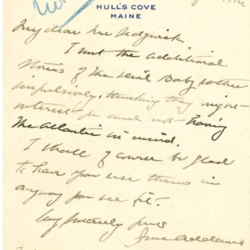 HULL'S COVE
MAINE
My dear Mr. Sedgwick
I sent the additional
stories of the Devil Baby rather
impulsively, thinking they might
interest you and not having
The Atlantic in mind.
I should of course be glad
to have you use them in
anyway you see fit.
Very sincerely yours
Jane Addams